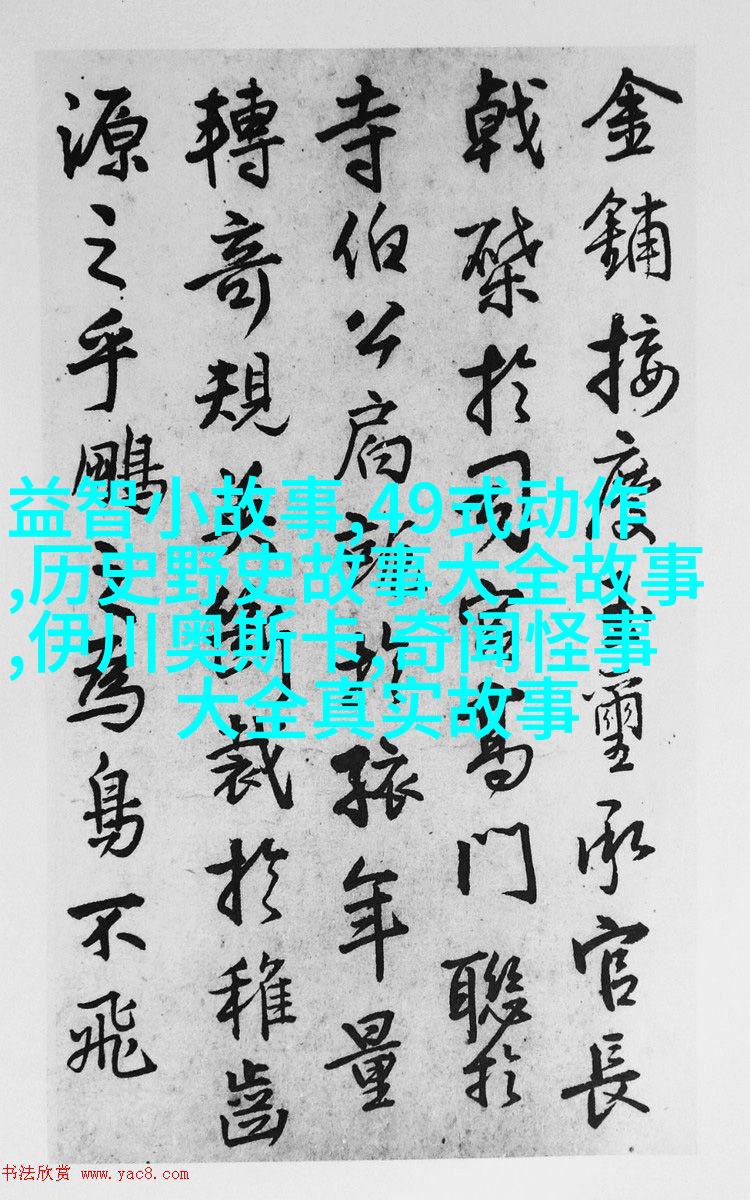 金鋪接慶璽承官長
戟於司高門聯於
寺伯公扃於孩年量
轉奇規裁於稚齒
源之乎鵬之為鳥不飛
益智小故事,49式动作
,历史野史故事大全故事
,伊川奥斯卡,奇闻怪事
大全真实故事
书法欣赏 www.yac8.com